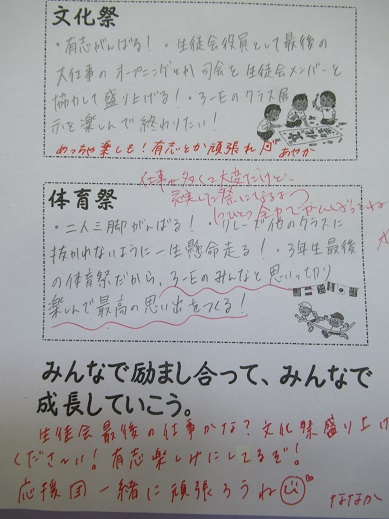 文化祭
・有志がんばる！・生徒会役員として最後の
大仕事のオープニングとか司会を生徒会メンバーと
協力して盛り上げる！・3-Eのクラス展
示を楽しんで終わりたい！
めっちゃ楽しも！有志とか頑張れ あやか
仕事が多くて大変だけど、
充実した祭になるよう
全力でがんばろうね
体育祭
・二人三脚がんばる！・リレーで他のクラスに
抜かれないように一生懸命走る！・3年生最後
の体育祭だから、3-Eのみんなと思いっ切り
楽しんで最高の思い出をつくる！
みんなで励まし合って、みんなで
成長していこう。
生徒会最後の仕事かな？文化祭盛り上げ
くださ〜い！有志楽しみにしてるぞ！
応援団一緒に頑張ろうね
ななか